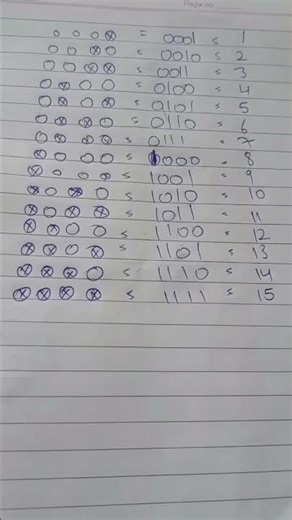 Page no
o o o ⊗ = 0001 = 1
o o ⊗ o = 0010 = 2
o o ⊗ ⊗ = 0011 = 3
o ⊗ o o = 0100 = 4
o ⊗ o ⊗ = 0101 = 5
o ⊗ ⊗ o = 0110 = 6
o ⊗ ⊗ ⊗ = 0111 = 7
⊗ o o o = 1000 = 8
⊗ o o ⊗ = 1001 = 9
⊗ o ⊗ o = 1010 = 10
⊗ o ⊗ ⊗ = 1011 = 11
⊗ ⊗ o o = 1100 = 12
⊗ ⊗ o ⊗ = 1101 = 13
⊗ ⊗ ⊗ o = 1110 = 14
⊗ ⊗ ⊗ ⊗ = 1111 = 15